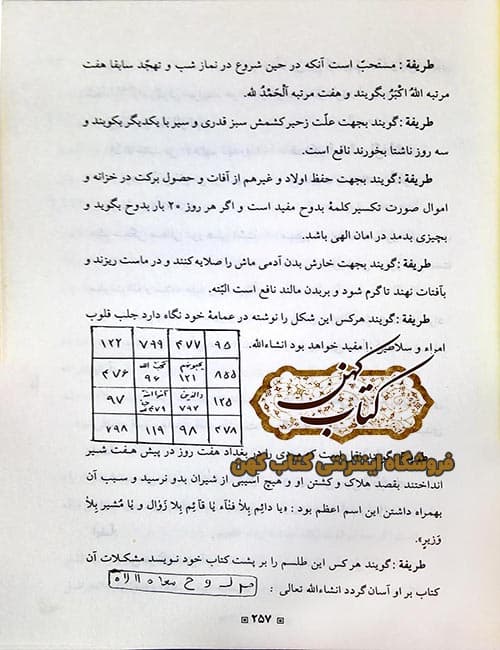 طریفة : مستحبّ است آنکه در حین شروع در نماز شب و تهجّد سابقا هفت
مرتبه اللهُ اَکْبَرُ بگویند و هفت مرتبه اَلْحَمْدُ لله.
طریفة : گویند بجهت علّت زحیر کشمش سبز قدری و سیر با یکدیگر بکوبند و
سه روز ناشتا بخورند نافع است.
طریفة : گویند بجهت حفظ اولاد و غیرهم از آفات و حصول برکت در خزانه و
اموال صورت تکسیر کلمهٔ بدوح مفید است و اگر هر روز ۲۰ بار بدوح بگوید و
بچیزی بدمد در امان الهی باشد.
طریفة : گویند بجهت خارش بدن آدمی ماش را صلایه کنند و در ماست ریزند و
بآفتاب نهند تا گرم شود و بر بدن مالند نافع است البّته.
طریفة : گویند هرکس این شکل را نوشته در عمامهٔ خود نگاه دارد جلب قلوب
امراء و سلاطین را مفید خواهد بود انشاءالله.
۱۲۲ ۷۹۹ ۴۷۷ ۹۵
۴۷۶ ۹۶ یحبونهم ۱۲۱ ۸۵۵
۹۷ والذین ۷۹۷ ۱۲۵
۷۹۸ ۱۱۹ ۹۸ ۴۷۸
کتاب کهن
فروشگاه اینترنتی کتاب کهن
را در بغداد هفت روز در پیش هفت شیر
انداختند بقصد هلاک و کشتن او و هیچ آسیبی از شیران بدو نرسید و سبب آن
بهمراه داشتن این اسم اعظم بود : «یا دائِم بِلا فَنٰآء یٰا قٰآئِم بِلا زَوٰال وَ یٰا مُشیر بِلاٰ
وَزیرِ».
طریفة : گویند هرکس این طلسم را بر پشت کتاب خود نویسد مشکلات آن
کتاب بر او آسان گردد انشاءالله تعالی :
۲۵۷